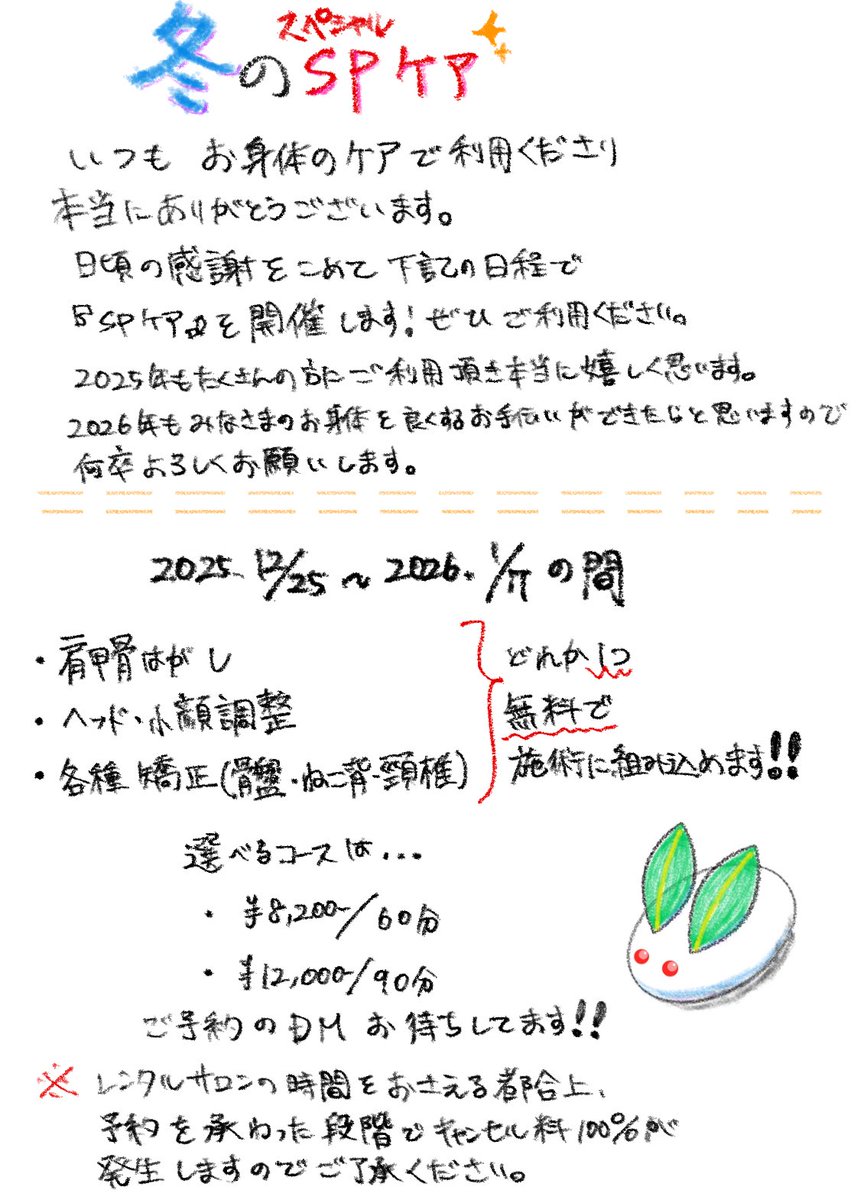 スペシャル
冬のSPケア
いつも お身体のケアで利用くださり
本当にありがとうございます。
日頃の感謝をこめて下記の日程で
『SPケア』を開催します!ぜひご利用ください。
2025年もたくさんの方にご利用頂き本当に嬉しく思います。
2026年もみなさまのお身体を良くするお手伝いができたらと思いますので
何卒よろしくお願いします。
2025. 12/25 〜 2026. 1/17 の間
・肩甲骨はがし
・ヘッド・小顔調整
・各種矯正(骨盤・ねこ背・頸椎)
どれか1つ
無料で
施術に組み込めます!!
選べるコースは...
・¥8,200-/60分
・¥12,000-/90分
ご予約のDMお待ちしてます!!
※ レンタルサロンの時間をおさえる都合上、
予約を承わった段階でキャンセル料100%が
発生しますのでご了承ください。